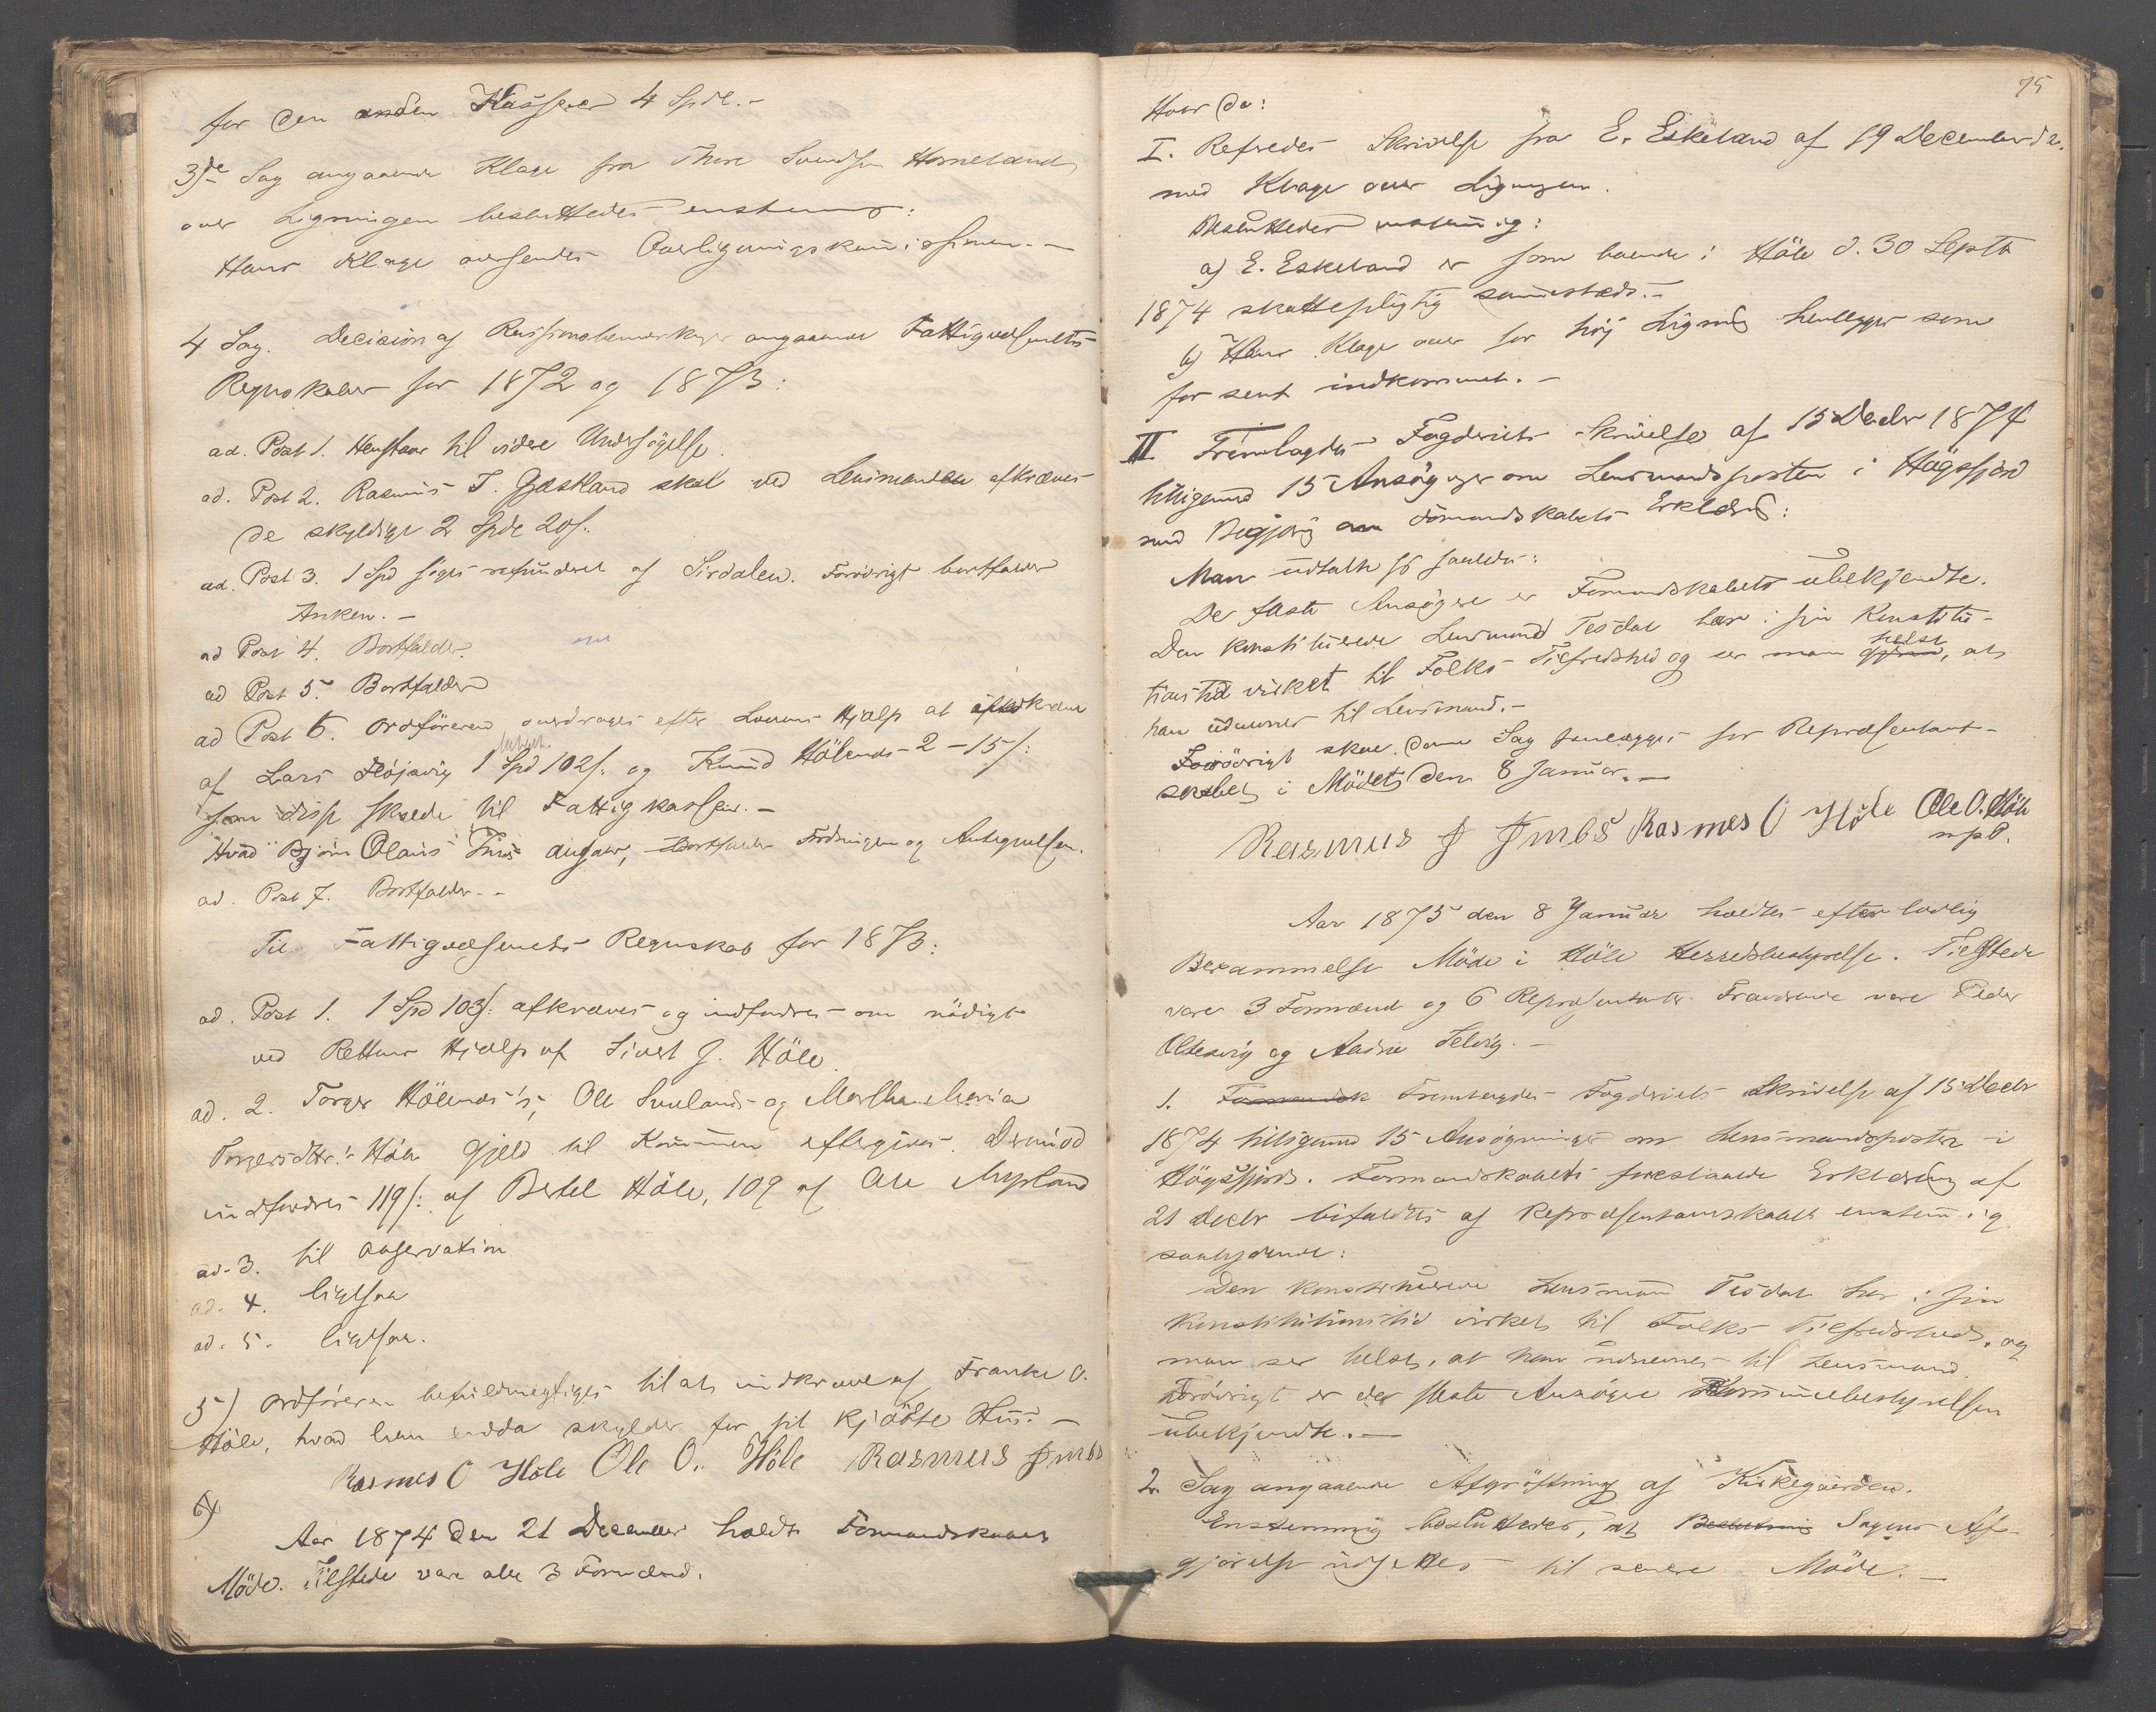 for den anden Kasserer 4 Spdl.-
3)de Sag angaaende Klage fra Thore Svendsen Horneland
over Ligningen besluttedes enstemmig:
Hans Klage oversendes Overligningskommissionen.-
4 Sag. Decision af Revisionsbemærkninger angaaende Fattigvæsenets
Regnskaber for 1872 og 1873:
ad. Post 1. Henstaar til videre Undersøgelse.
ad. Post 2. Rasmus T. Gjeskland skal ved Lensmanden afkræves
de skyldige 2 Spdl 20 s.
ad. Post 3. 1 Spd søges refunderet af Sirdalen. Forøvrigt bortfalder
Anken.-
ad Post 4. Bortfalder.
ad Post 5. Bortfalder
ad Post 6. Ordføreren overdrages efter Lovens Hjælp at afkræve
af Lars Fløjsvig 1 Spd 102 s. og Knud Hølends 2 - 15 s:
som disse skylde til Fattigkassen.-
Hvad Bjørn Olaus angaar, bortfalder Fordringen og Antegnelsen.
ad. Post 7. Bortfalder.-
Til Fattigvæsenets Regnskab for 1873:
ad. Post 1. 1 Spd 103 s: afkræves og indfordres om nødigt
ved Rettens Hjælp af Sivert J. Høle.
ad. 2. Torger Hølends's, Ole Svilands og Martha Maria
Torgersdtr.'s Høle Gjeld til Kommunen eftergives. Derimod
indfordres 119 s: af Bertel Høle, 109 af Ole Myland
ad. 3. til Observation
ad. 4. ligesaa
ad. 5. ligesaa.
5) Ordføreren befuldmægtiges til at indkræve af Franke O.
Høle, hvad han endda skylder for sit kjøbte Hus.-
Rasmes O Høle Ole O. Høle Rasmus J Imbs
6)
Aar 1874 den 21 December holdt Formandskabet
Møde. Tilstede vare alle 3 Formænd.
75
Hvor da:
I. Refredes Skrivelse fra E. Eskeland af 19 December d. A.
med Klage over Ligningen.
Besluttedes enstemmig:
a) E. Eskeland er som boende i Høle d. 30 Septb
1874 skattepligtig sammesteds.-
b) Hans Klage over for høj Ligning henlægges som
for sent indkommet.-
II Fremlagdes Fogderiets Skrivelse af 15 Decbr 1874
tilligemed 15 Ansøgninger om Lensmandsposten i Høgsfjord
med Begjæring om Formandskabets Erklæring:
Man udtalte sig saaledes:
De fleste Ansøgere er Formandskabet ubekjendte.
Den konstituerede Lensmand Tesdal har i sin Konstitu-
helst
tionstid virket til Folks Tilfredshed og ser man gjerne, at
han udnævnes til Lensmand.-
Forøvrigt skal denne Sag forelægges for Repræsentant-
skabet i Mødet den 8 Januar.-
Rasmus J Imbs Rasmes O Høle Ole O. Høle
m p P.
Aar 1875 den 8 Januar holdtes efter lovlig
Berammelse Møde i Høle Herredsbestyrelse. Tilstede
vare 3 Formænd og 6 Repræsentanter. Fraværende vare Peder
Oltesvig og Aadne Selvig.-
1. Formandsk Fremlagdes Fogderiets Skrivelse af 15 Decbr
1874 tilligemed 15 Ansøgninger om Lensmandsposten i
Høgsfjord. Formandskabets forestaaende Erklæring af
21 Decbr bifaldtes af Repræsentantskabet enstemmig
saalydende:
Den konstituerede Lensmand Tesdal har i sin
Konstitutionstid virket til Folks Tilfredshed, og
man ser helst, at han udnævnes til Lensmand.
Forøvrigt er de fleste Ansøgere Kommunebestyrelsen
ubekjendte.-
2. Sag angaaende Afgrøftning af Kirkegaarden.
Enstemmig besluttedes, at Beslutning Sagens Af-
gjørelse udsættes til senere Møde.-